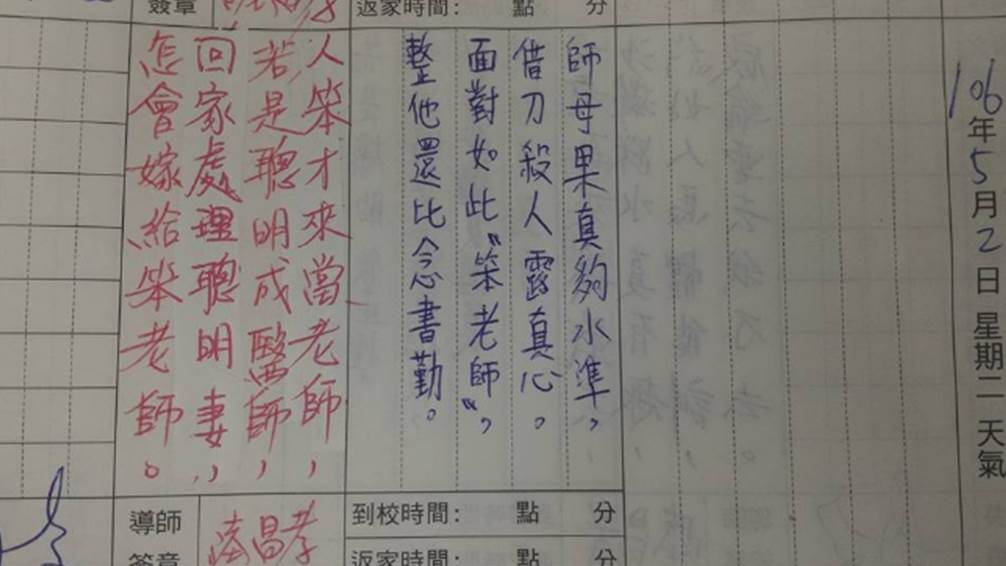 106年5月2日星期二天氣
師母果真夠水準，
借刀殺人露真心。
面對如此“笨老師”，
整他還比念書勤。
人笨才來當老師，
若是聰明成醫師，
回家處理聰明妻，
怎會嫁給笨老師。
簽章
返家時間：點分
到校時間：點分
返家時間：點分
導師
簽章
昌孝